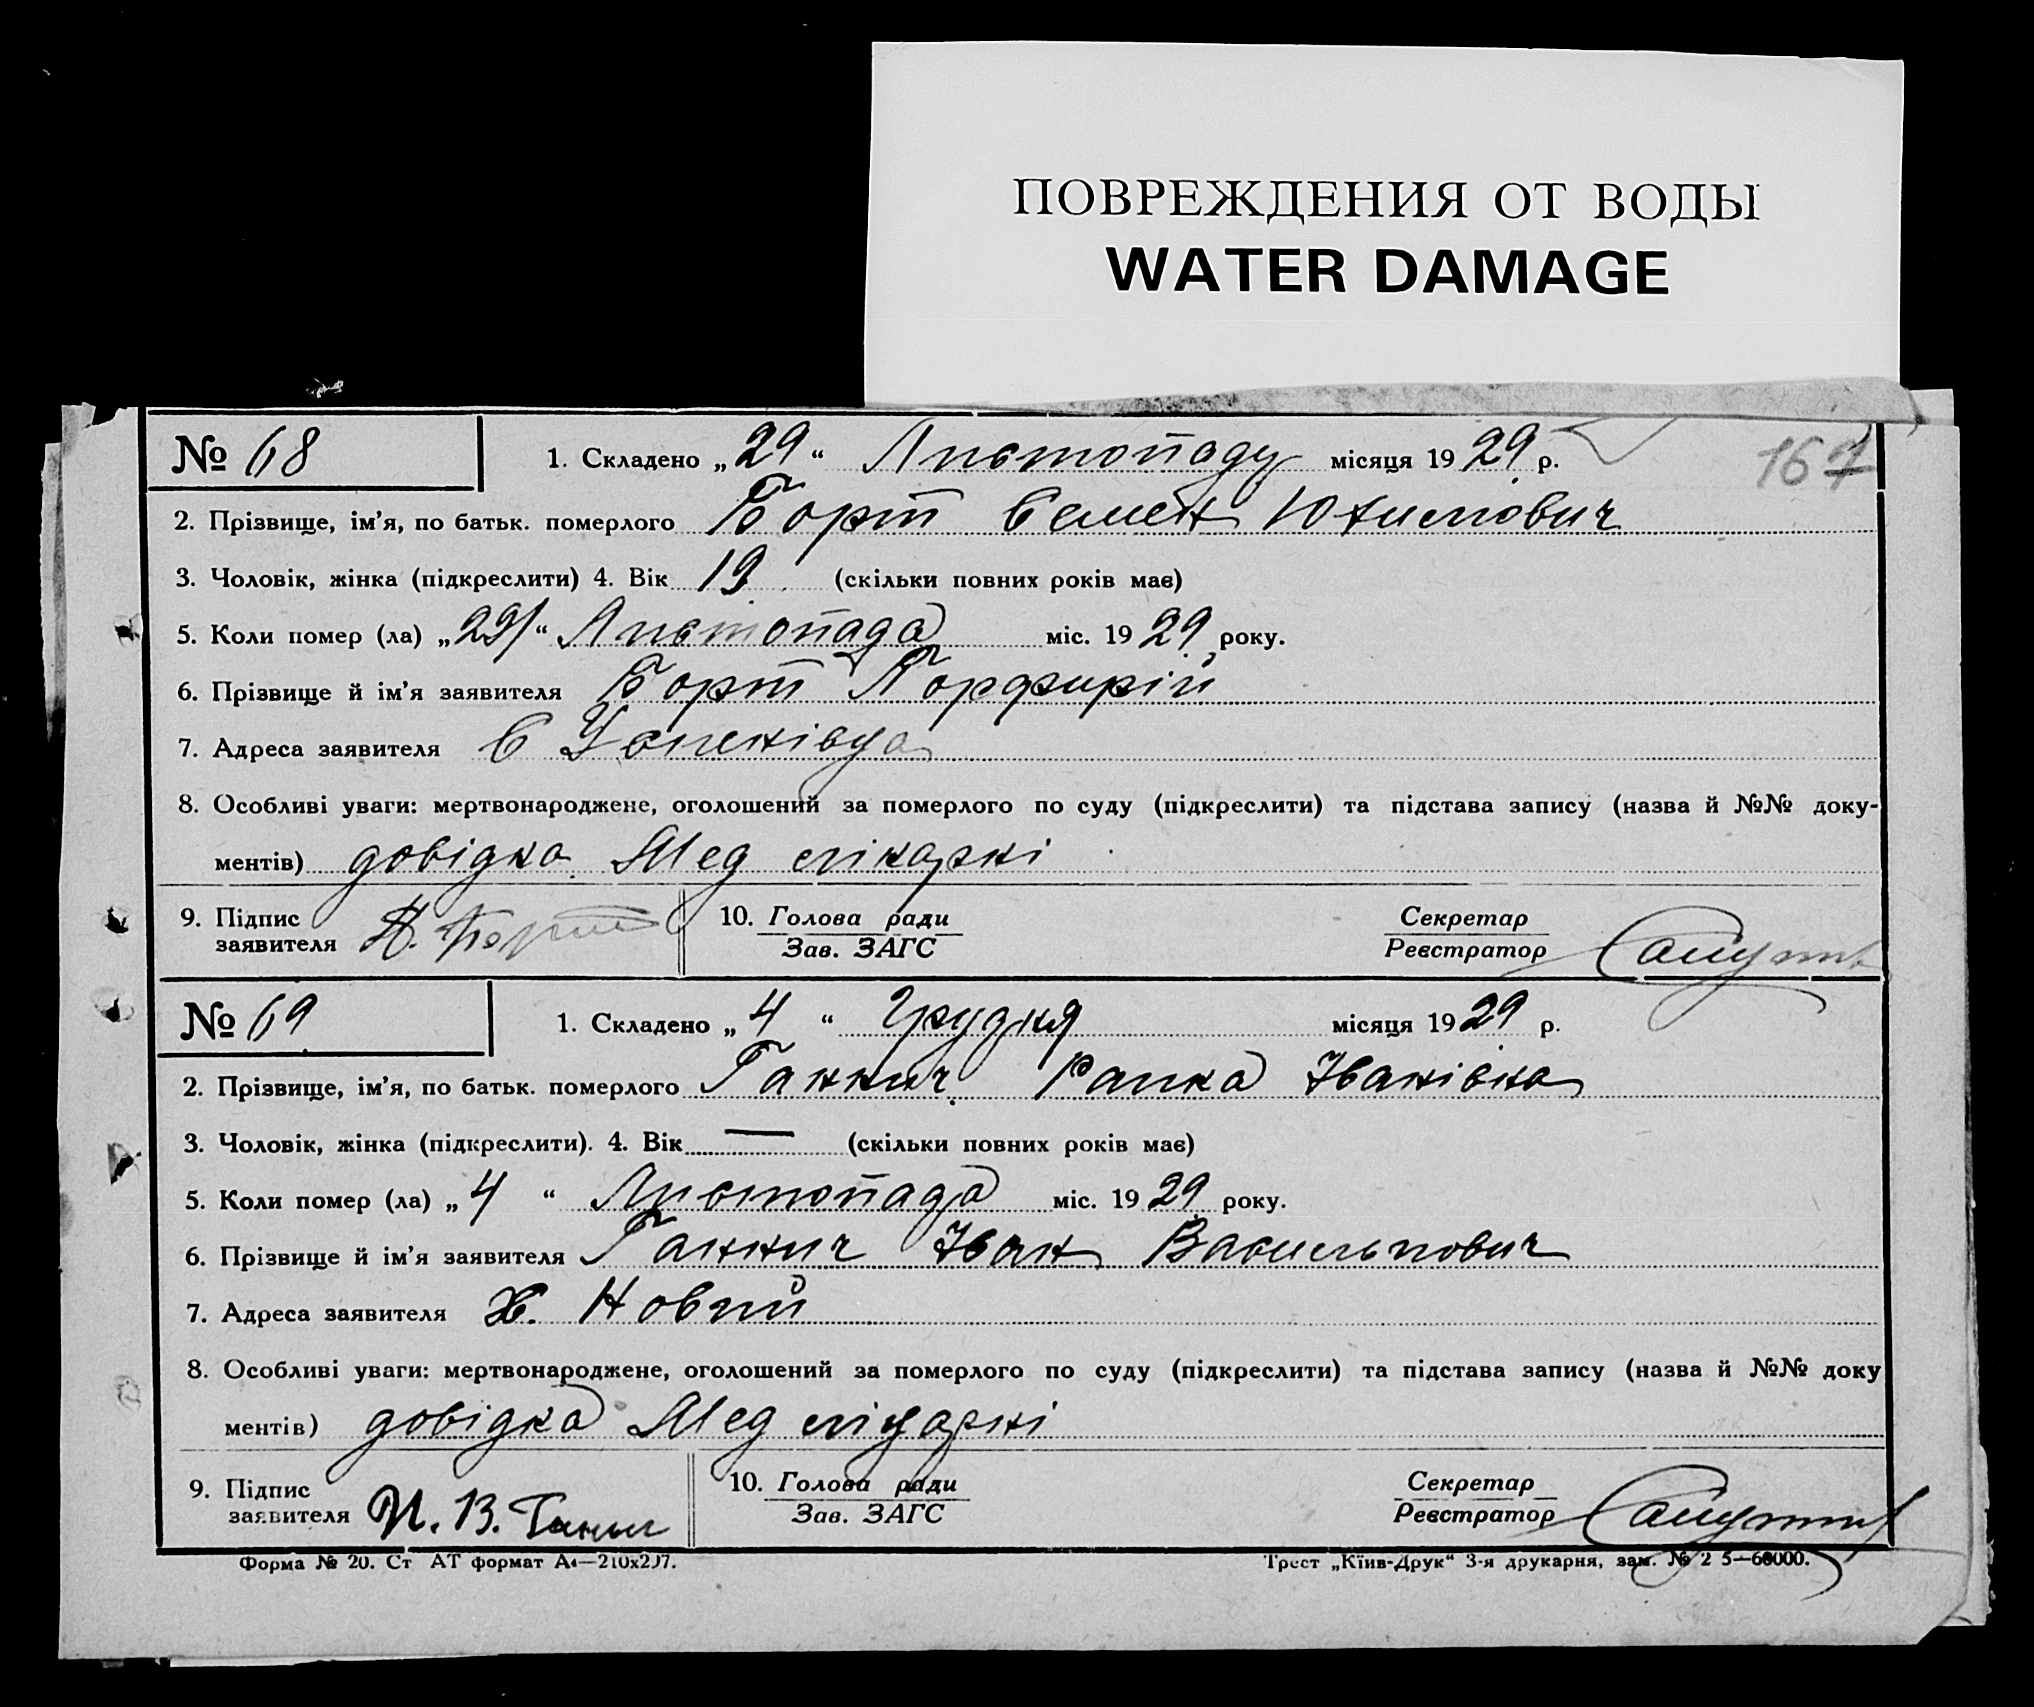 ПОВРЕЖДЕНИЯ ОТ ВОДЫ
WATER DAMAGE
167
№ 68
1. Складено „29“ Листопаду місяця 1929 р.
2. Прізвище, ім’я, по батьк. померлого Борт Семен Юхимович
3. Чоловік, жінка (підкреслити) 4. Вік 19 (скільки повних років має)
5. Коли помер (ла) „29“ Листопада міс. 1929 року.
6. Прізвище й ім’я заявителя Борт Порфирій
7. Адреса заявителя С Успенівца
8. Особливі уваги: мертвонароджене, оголошений за померлого по суду (підкреслити) та підстава запису (назва й №№ доку-
ментів) довідка Мед лікарні
9. Підпис
заявителя П. Борт
10. Голова ради
Зав. ЗАГС
Секретар
Реєстратор
№ 69
1. Складено „4“ Грудня місяця 1929 р.
2. Прізвище, ім’я, по батьк. померлого Ганнич Раика Іванівна
3. Чоловік, жінка (підкреслити). 4. Вік — (скільки повних років має)
5. Коли помер (ла) „4“ Листопада міс. 1929 року.
6. Прізвище й ім’я заявителя Ганнич Іван Васильпович
7. Адреса заявителя Х. Новий
8. Особливі уваги: мертвонароджене, оголошений за померлого по суду (підкреслити) та підстава запису (назва й №№ доку
ментів) довідка Мед ліцарні
9. Підпис
заявителя И. В. Ганич
10. Голова ради
Зав. ЗАГС
Секретар
Реєстратор
Форма № 20. Ст АТ формат А4—210х297.
Трест „Київ-Друк“ 3-я друкарня, зам. № 2 5—60000.